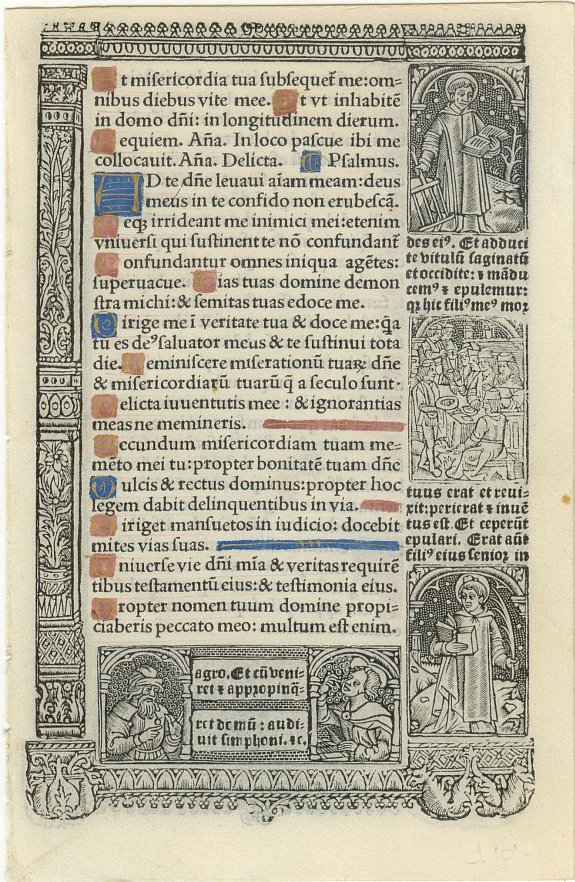 Et misericordia tua subsequet̄ me: om=
nibus diebus vite mee. Et vt inhabitē
in domo dn̄i: in longitudinem dierum.
Requiem. An̄a. In loco pascue ibi me
collocauit. An̄a. Delicta. Psalmus.
AD te dn̄e leuaui aīam meam: deus
meus in te confido non erubescā.
Neqꝫ irrideant me inimici mei: etenim
vniuersi qui sustinent te nō confundant̄
Confundantur omnes iniqua agētes:
superuacue. Vias tuas domine demon
stra michi: & semitas tuas edoce me.
Dirige me ī veritate tua & doce me: q̄a
tu es deꝰ saluator meus & te sustinui tota
die. Reminiscere miserationū tuaꝝ dn̄e
& misericordiarū tuarū q̄ a seculo sunt.
Delicta iuuentutis mee: & ignorantias
meas ne memineris.
Secundum misericordiam tuam me=
mēto mei tu: propter bonitatē tuam dn̄e
Dulcis & rectus dominus: propter hoc
legem dabit delinquentibus in via.
Diriget mansuetos in iudicio: docebit
mites vias suas.
Vniuerse vie dn̄i mīa & veritas requirē
tibus testamentū eius: & testimonia eius.
Propter nomen tuum domine propi=
ciaberis peccato meo: multum est enim.
des eiꝰ. Et adduci
te vitulū saginatū
et occidite: ⁊ mādu
cemꝰ ⁊ epulemur:
qꝫ hic filiꝰ meꝰ mor
tuus erat et reui=
xit: perierat ⁊ inuē
tus est. Et ceperūt
epulari. Erat aūt
filiꝰ eius senior in
agro. Et cū veni=
ret ⁊ appropinq̄=
ret domū: audi=
uit simphoni. ⁊c.